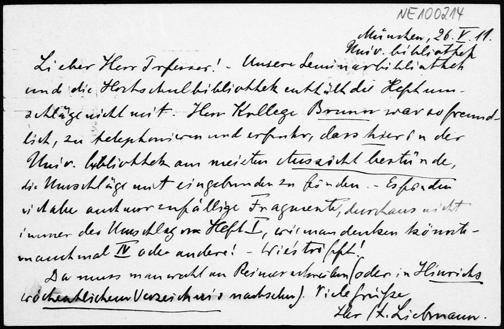 NE100214
München, 26. V. 11.
Univ. bibliothek
Lieber Herr Professor! – Unsere Seminarbibliothek
und die Hochschulbibliothek enthält die Heftum-
schläge nicht mit. Herr Kollege Brunn war so freund-
lich, zu telephonieren und erfuhr, dass hier in der
Univ. bibliothek am meisten Aussicht bestünde,
die Umschläge mit eingebunden zu finden. – Es finden
sich aber auch nur zufällige Fragmente, durchaus nicht
immer der Umschlag von Heft I, wie man denken könnte –
manchmal IV oder andere! – Wie's trifft!
Da muss man wohl an Reimer schreiben (oder in Hinrichs
wöchentlichem Verzeichnis nachsehen). Viele Grüße
Ihr H. Liebmann.